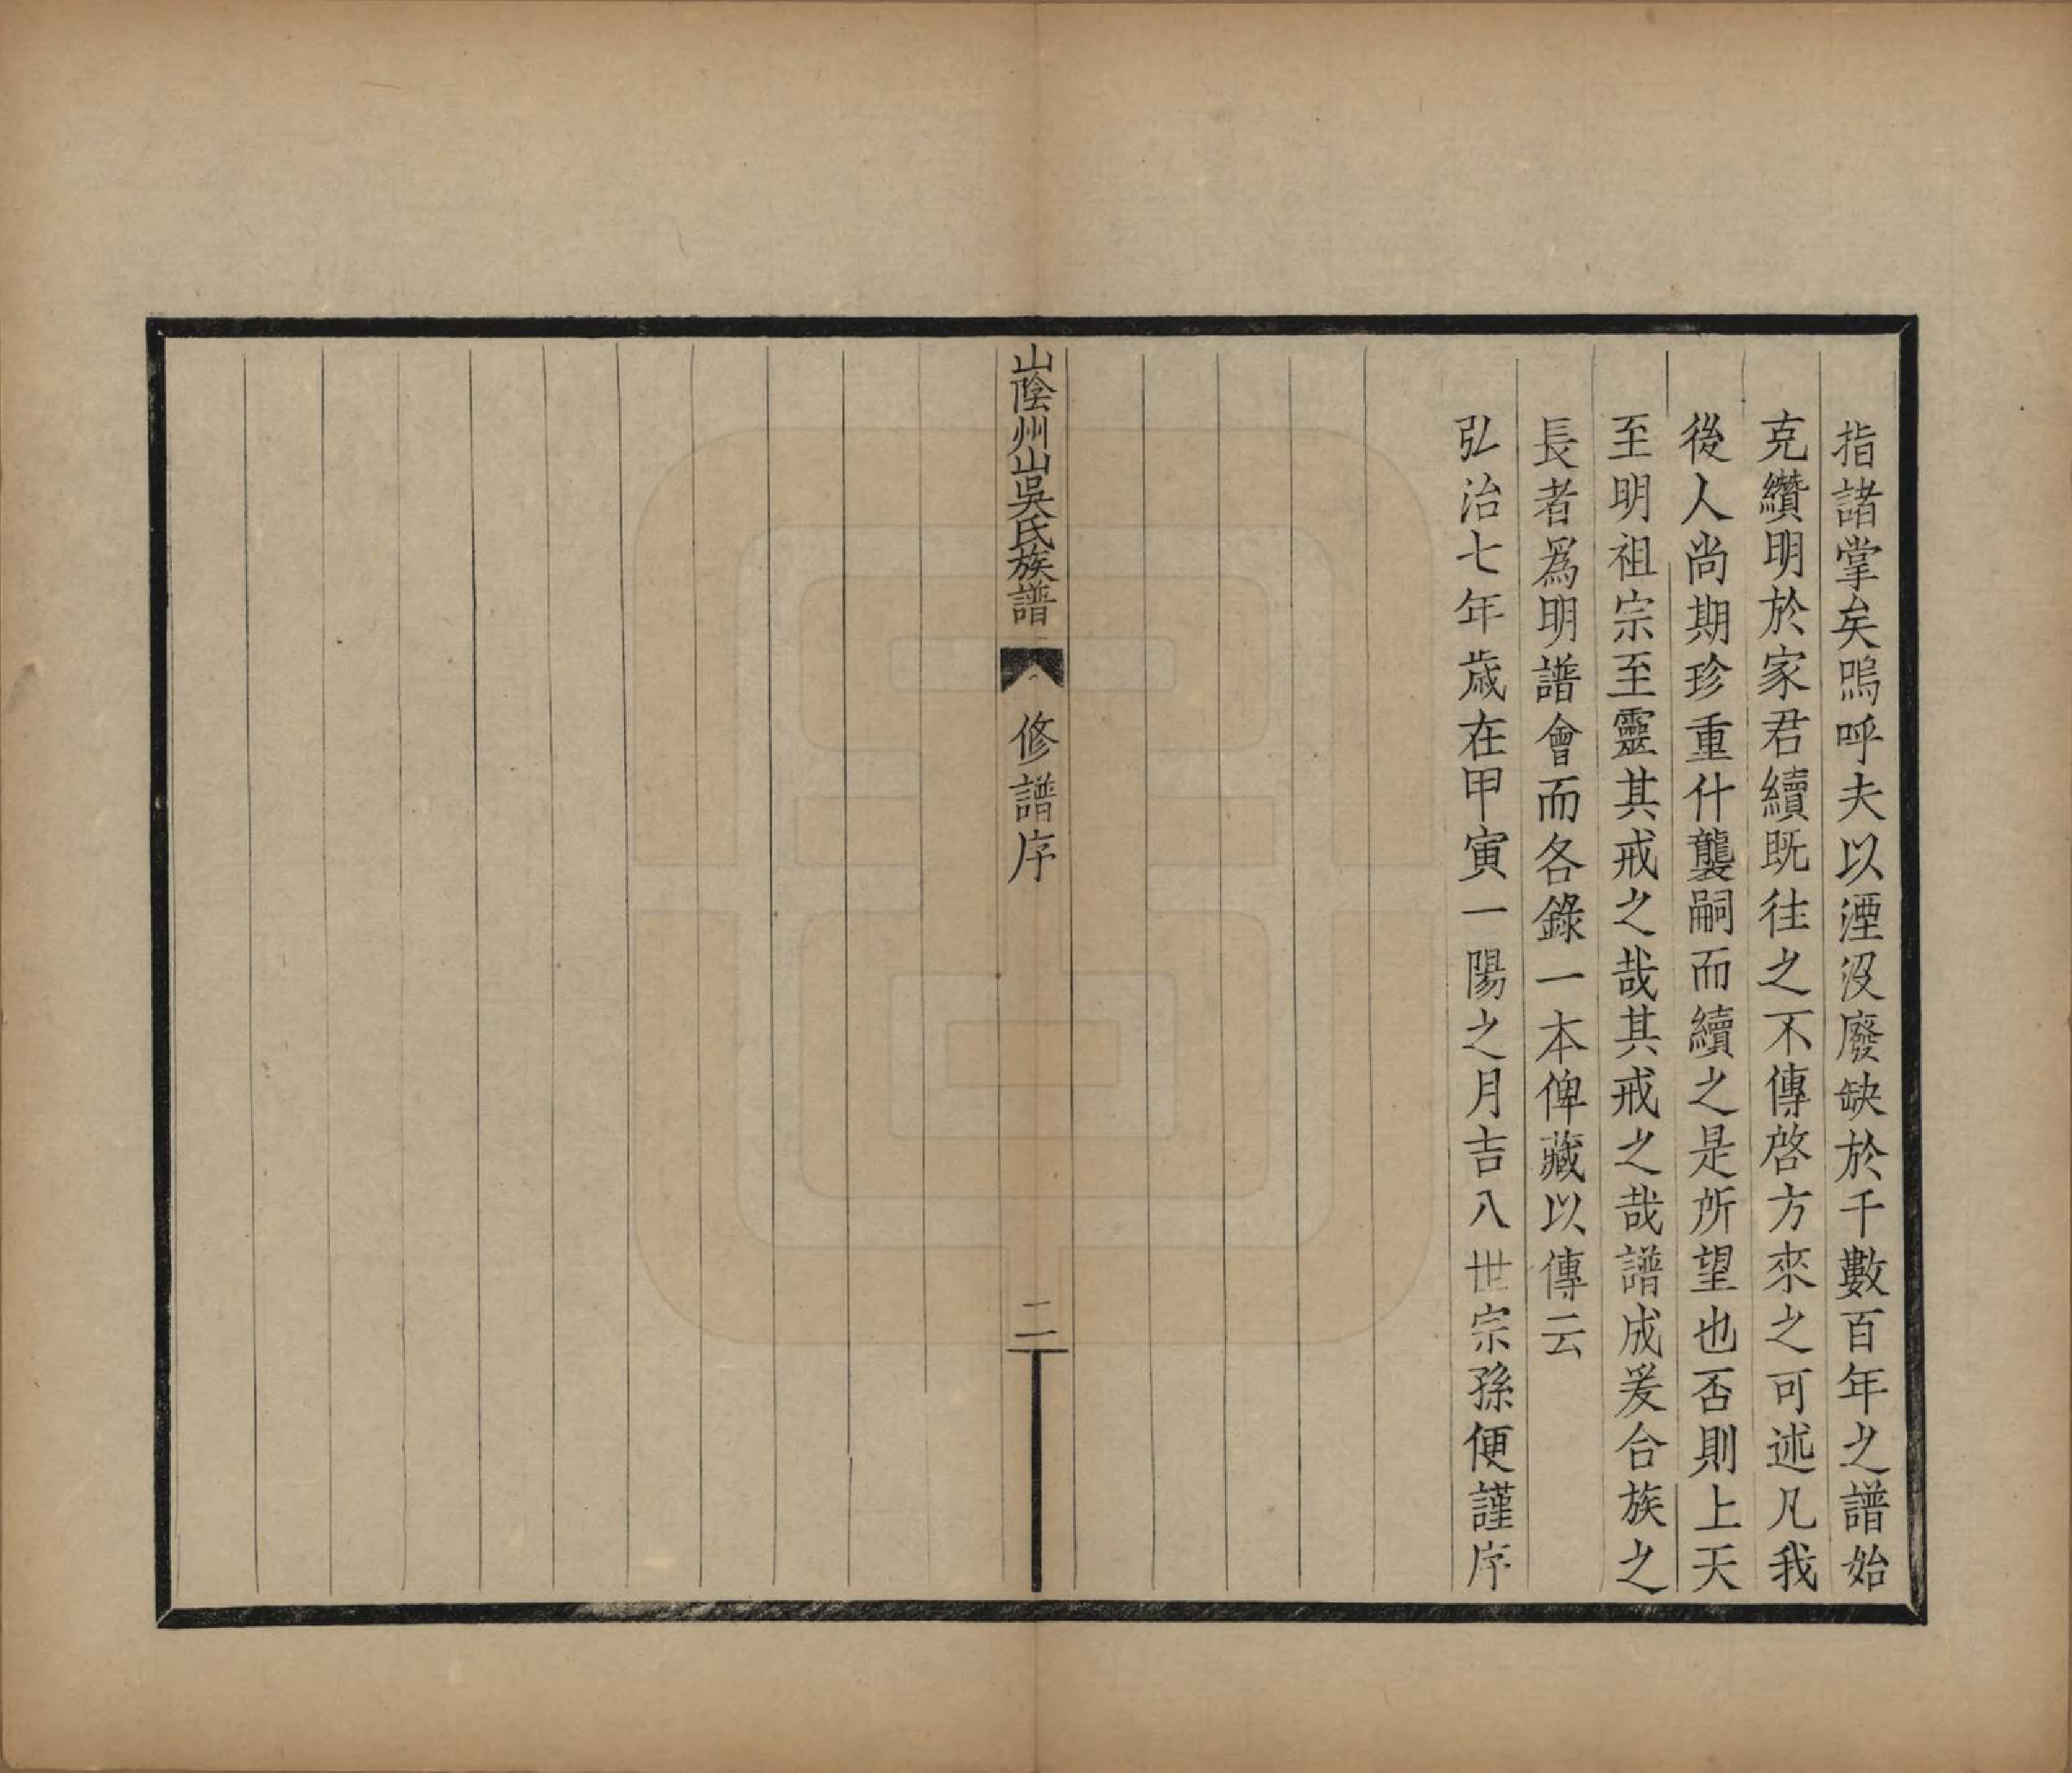 指諸掌矣嗚呼夫以湮沒廢缺於千數百年之譜始
克纘明於家君續既往之不傳啓方來之可述凡我
後人尚期珍重什襲嗣而續之是所望也否則上天
至明祖宗至靈其戒之哉其戒之哉譜成爰合族之
長者爲明譜會而各錄一本俾藏以傳云
弘治七年歲在甲寅一陽之月吉八世宗孫便謹序
山陰州山吳氏族譜
修譜序
二